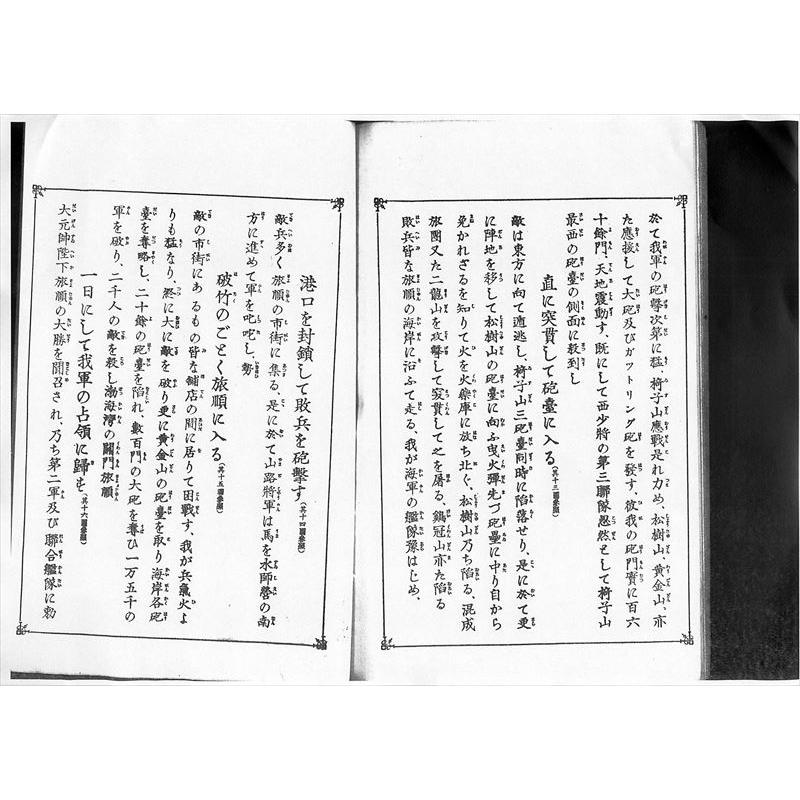 於て我軍の砲擊次第に猛、椅子山應戰是れ力め、松樹山、黄金山、亦
た應援して大砲及びガットリング砲を發す、彼我の砲門實に百六
十餘門、天地震動す、既にして西少將の第三聯隊忽然として椅子山
最西の砲臺の側面に殺到し
直に突貫して砲臺に入る（其十三圖參照）
敵は東方に向て遁逃し、椅子山三砲臺同時に陷落せり、是に於て更
に陣地を移して松樹山の砲臺に向ふ曳火彈先づ砲壘に中り自から
免かれざるを知りて火を火藥庫に放ち北ぐ、松樹山乃ち陷る、混成
旅團又た二龍山を攻擊して突貫して之を屠る、鷄冠山亦た陷る
敗兵皆な旅順の海岸に沿ふて走る、我が海軍の艦隊豫はじめ、
港口を封鎖して敗兵を砲擊す（其十四圖參照）
敵兵多く旅順の市街に集る、是に於て山路將軍は馬を水師營の南
方に進めて軍を叱咤し、勢
破竹のごとく旅順に入る（其十五圖參照）
敵の市街にあるもの皆な舗店の間に居りて困戰す、我が兵氣火よ
りも猛なり、終に大に敵を破り更に黄金山の砲臺を取り海岸各砲
臺を奪略し、二十餘の砲臺を陷れ、數百門の大砲を奪ひ一万五千の
軍を破り、二千人の敵を殺し渤海灣の關門旅順
一日にして我軍の占領に歸も（其十六圖參照）
大元帥陛下旅順の大勝を聞召され、乃ち第二軍及び聯合艦隊に勅